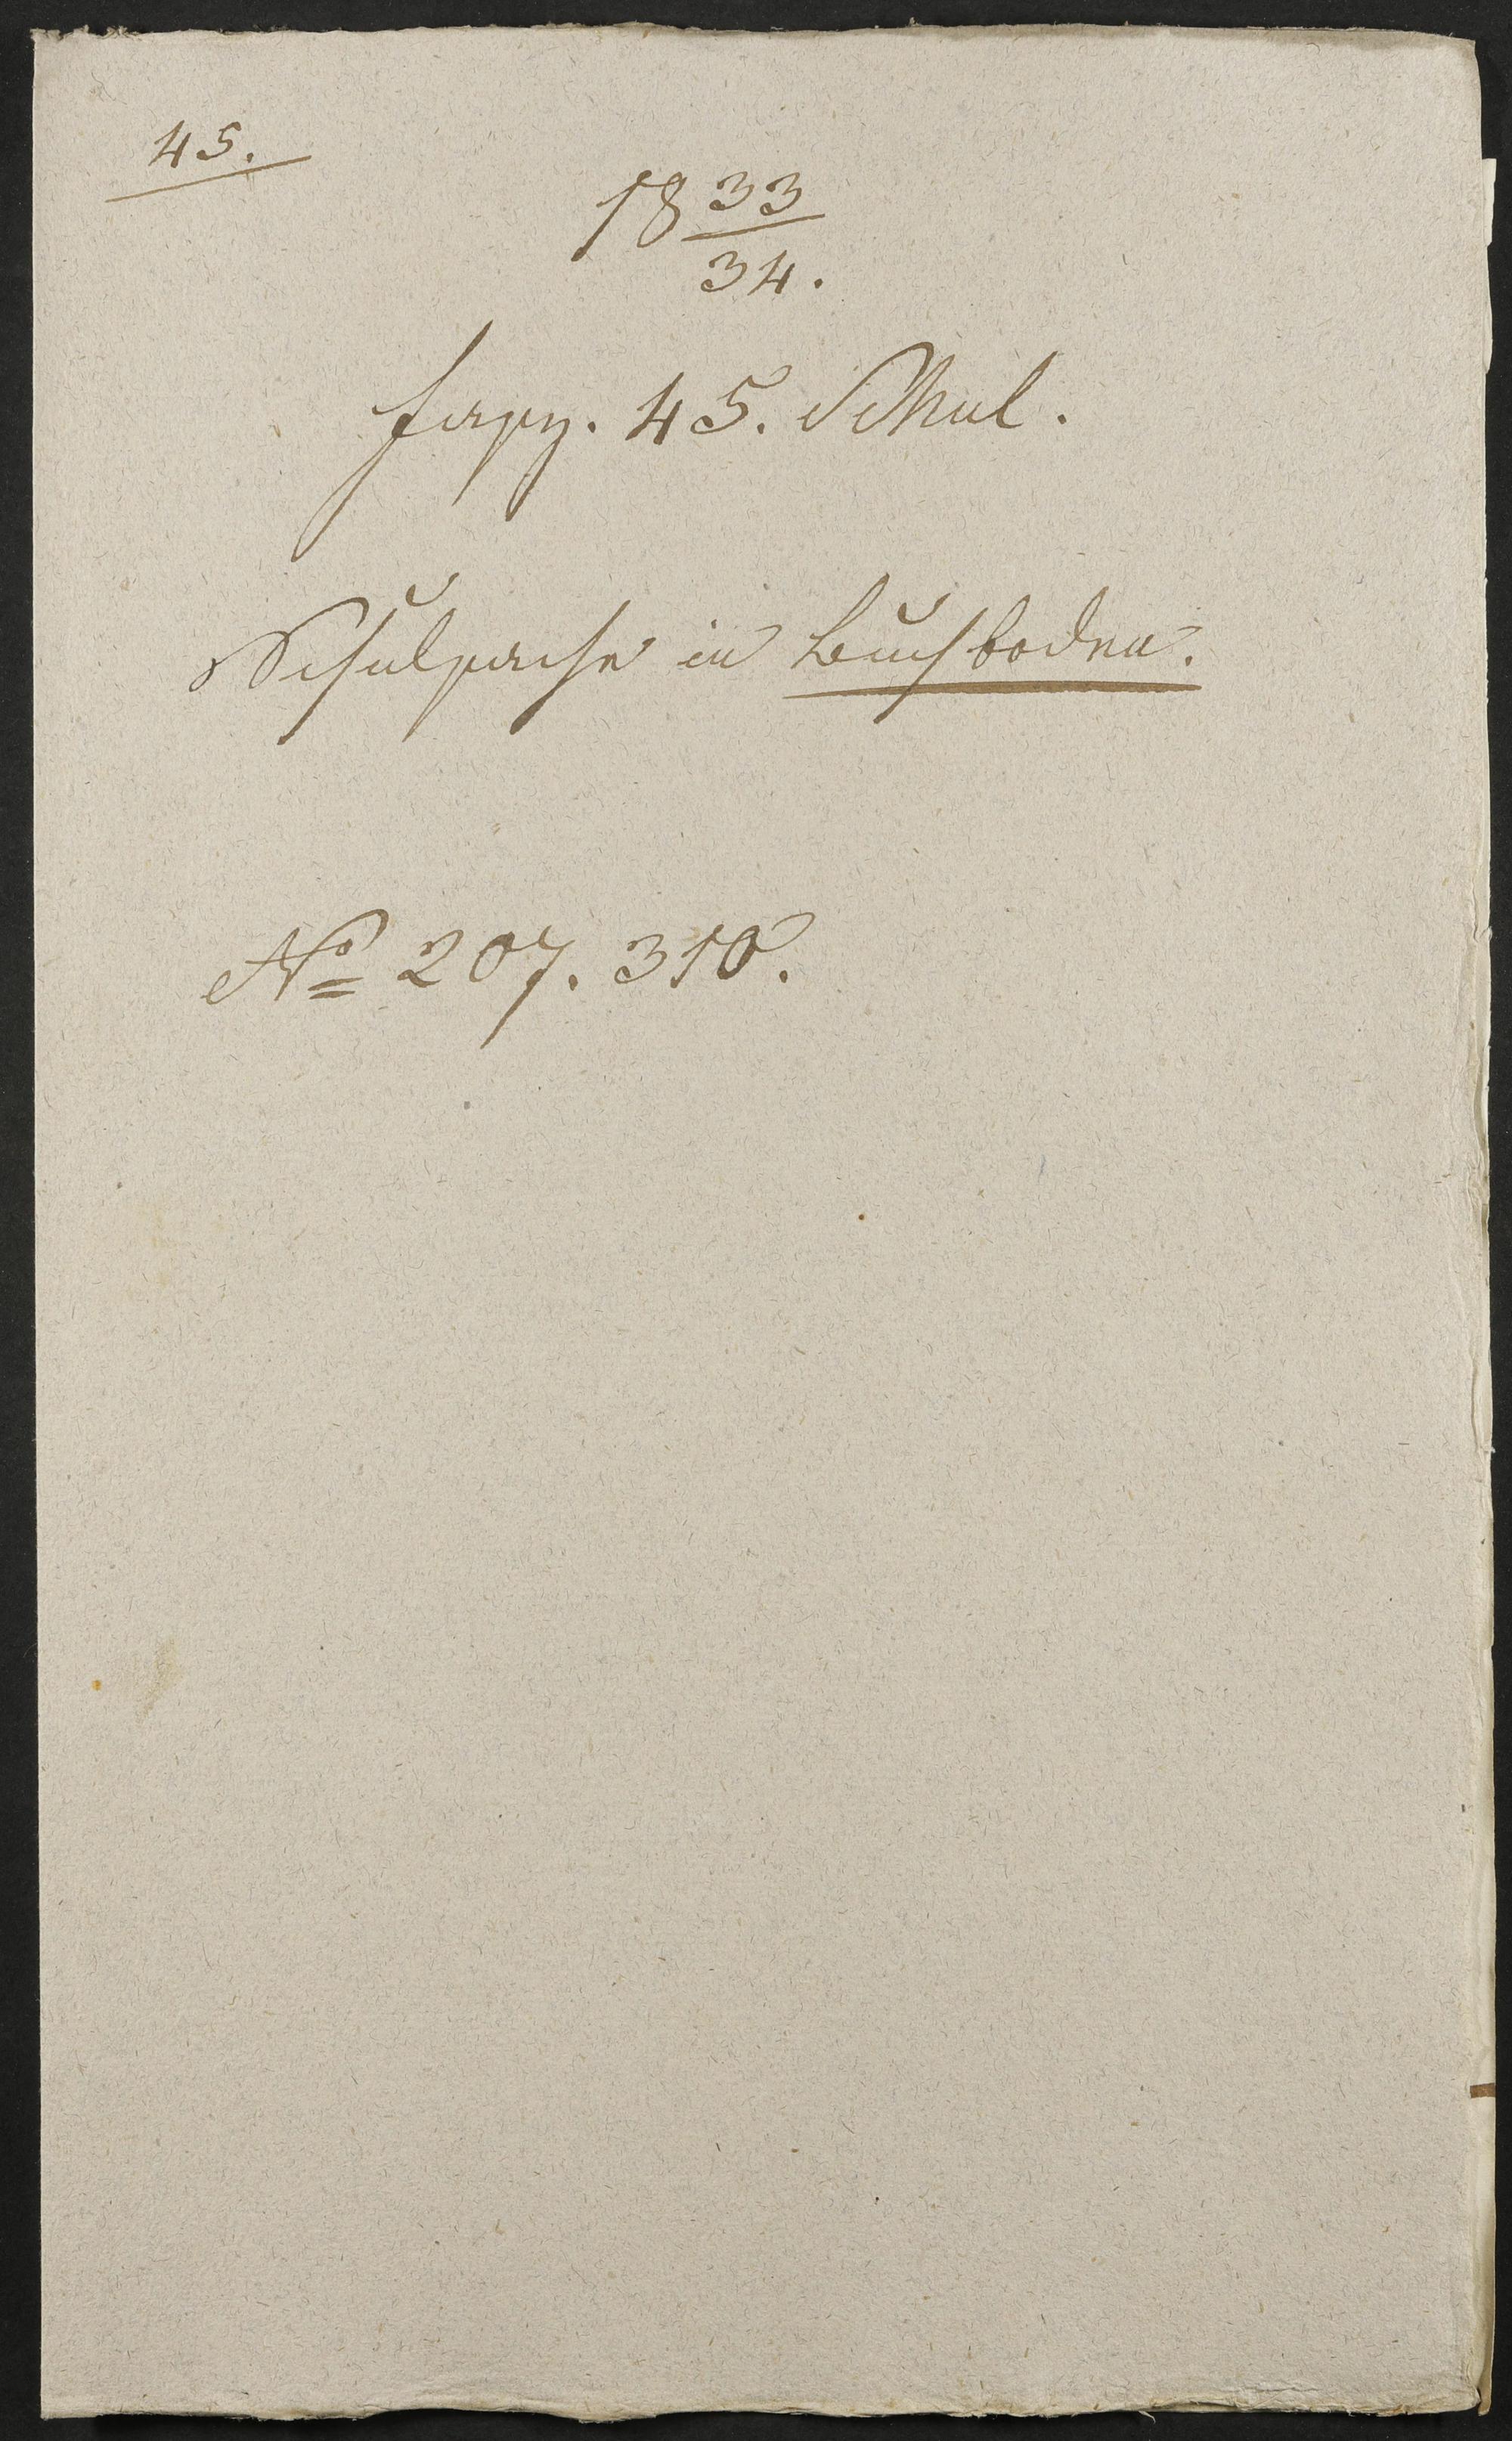 45.
18 33/34.
fasz. 45. Schul.
Schulsache in Buchboden.
No 207. 310.